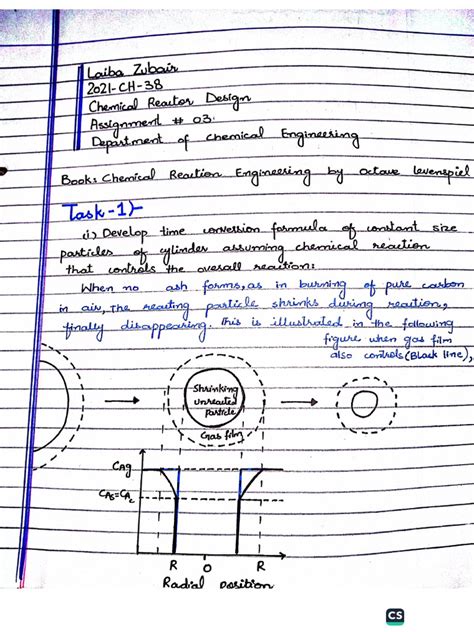 Laiba Zubair
2021-CH-38
Chemical Reactor Design
Assignment # 03.
Department of Chemical Engineering
Book: Chemical Reaction Engineering by octave levenspiel
Task-1)-
(i) Develop time conversion formula of constant size
particles of cylinder assuming chemical reaction
that controls the overall reaction:
When no ash forms, as in burning of pure carbon
in air, The reacting particle shrinks during reaction,
finally disappearing. This is illustrated in the following
figure when gas film
also controls (Black line),
Shrinking
unreacted
Particle
Gas film
CAg
CAs=CAc
R O R
Radial position
CS